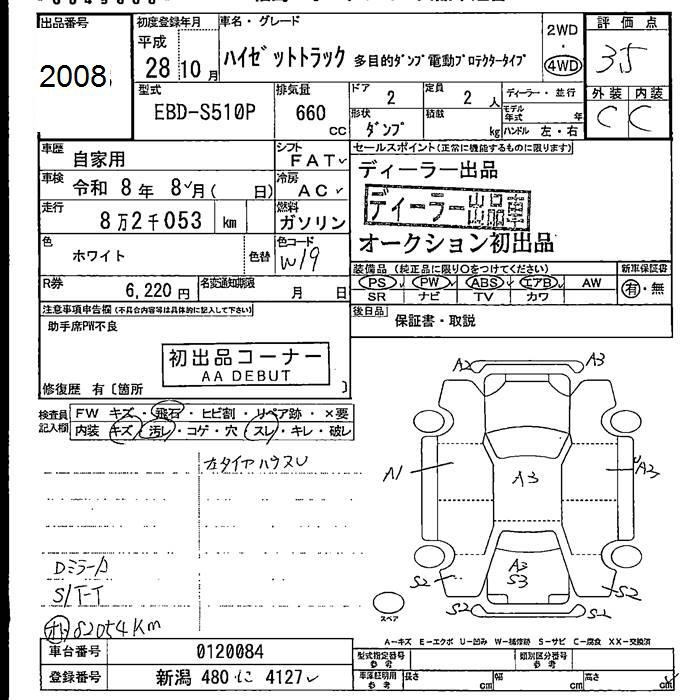 出品番号 初度登録年月 車名・グレード 2WD 評価点
2008
平成
28年10月
ハイゼットトラック 多目的ダンプ電動プロテクタータイプ
・
4WD
3.5
型式 排気量 ドア 定員 ディーラー・並行 外装 内装
EBD-S510P 660 cc 2 2人
モデル年式 年
C C
形状 積載
ダンプ kg ハンドル 左・右
車歴 自家用 シフト FAT
セールスポイント(正常に機能するものに限ります)
ディーラー出品
車検 令和 8年 8月( 日) 冷房 AC
ディーラー出品車
走行 8万2千053 km 燃料 ガソリン
オークション初出品
色 ホワイト 色替 色コード W19
装備品(純正品に限り○をつけてください) 新車保証書
PS PW ABS エアB AW 有・無
SR ナビ TV カワ
R券 6,220円 名変通知期限 月 日
注意事項申告欄(不具合内容等は具体的に記入して下さい)
後日品 保証書・取説
助手席PW不良
初出品コーナー
AA DEBUT
修復歴 有〔箇所 〕
検査員記入欄 FW キズ・飛石・ヒビ割・リペア跡・×要
内装 キズ・汚レ・コゲ・穴・スレ・キレ・破レ
A2 A3
A1 A3 A3
A3
S3
S2 S2
S2 S2
スペア
S/T-T
82054Km
A-キズ E-エクボ U-凹み W-補修跡 S-サビ C-腐食 XX-交換済
車台番号 0120084 型式指定番号 参考 類別区分番号 参考
登録番号 新潟 480 に 4127 車庫証明用 参考 長さ cm 幅 cm 高さ cm